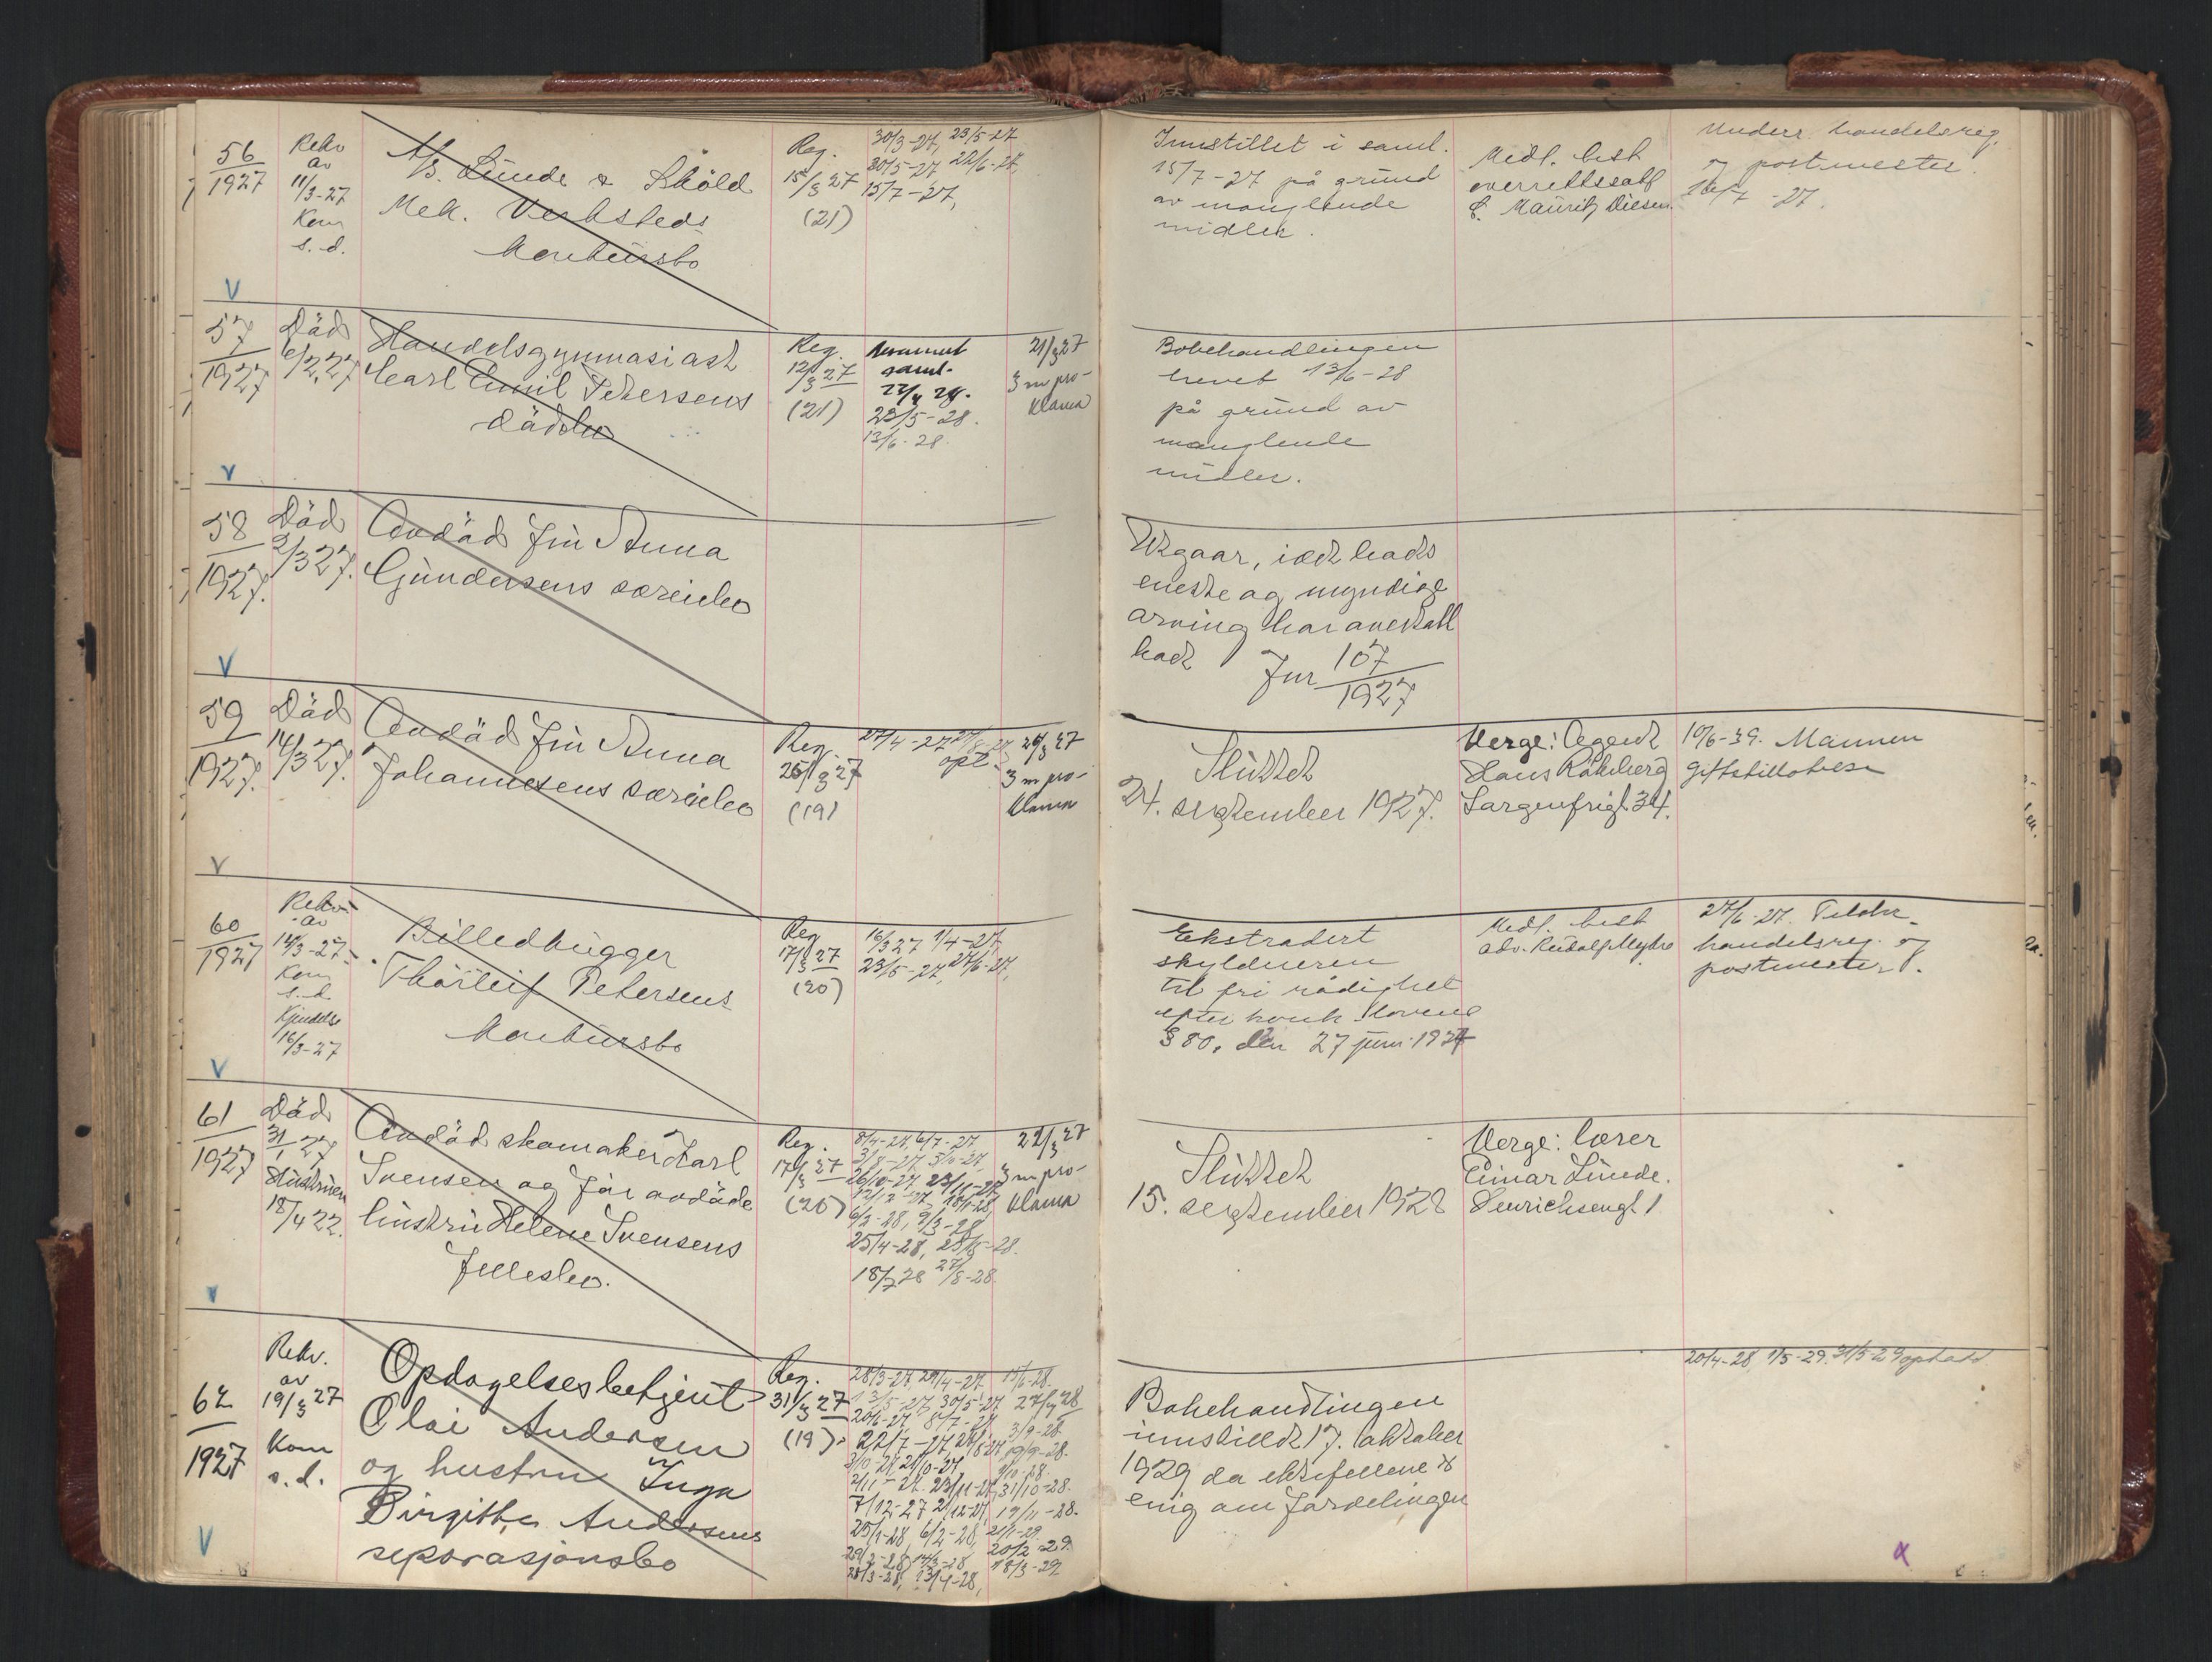 56
1927
Rekv
av
11/3-27
Kom
s.d.
A/S. Lunde & Sköld
Mek. Verksteds
konkursbo
Reg.
15/3 27
(21)
30/3-27, 23/5-27
30/5-27 22/6-27,
15/7-27,
Innstillet i saml.
15/7-27 på grund
av manglende
midler.
Medl. best
overrettssakf
f. Mauritz Diesen.
Underr. handelsreg.
og postmester.
16/7-27.
57
1927
Död
6/2.27
Handelsgymnasiast
Carl Emil Petersens
dödsbo
Reg.
12/3 27
(21)
saml.
23/5-28.
13/6-28.
21/3 27
3 m pro-
klama
Bobehandlingen
hevet 13/6-28
på grund av
manglende
midler.
58
1927.
Död
2/3 27.
Avdöd fru Anna
Gundersens særeiebo
Utgaar, idet bods
eneste og myndige
arving har overtatt
boet
Jnr 107
1927
59
1927.
Död
14/3 27.
Avdöd fru Anna
Johannesens særeiebo
Reg.
25/3 27
(19)
27/4-27
opt.
24/3 27
3 m pro-
klama
Sluttet
24. september 1927.
Verge: Agent
Hans
Sorgenfrigt. 34.
10/6-39. Mannen
giftstillatelse
60
1927
Rekv.
av
14/3-27.
Kom
s.d.
Kjendelse
16/3-27
Billedhugger
Thorleif Petersens
konkursbo
Reg
17/3 27
(20)
16/3 27 1/4-27,
23/5-27, 27/6-27,
Ekstradert
skyldneren
til fri rådighet
efter konk. lovens
§ 80, den 27 juni 1927
Medl. best
adv. Rudolf Myhre
27/6-27.
handelsreg. og
postmester.
61
1927
Död
31/1 27
Hustruen
18/4 22.
Avdöd skomaker Karl
Svensen og för avdöde
hustru Helene Svensens
fellesbo.
Reg.
17/3 27
(20)
8/4-27, 6/7-27
26/10-27 23/11-27
6/2-28, 9/3-28
25/4-28, 23/5-28.
18/7 28 27/8-28
22/3 27
3 m pro-
klama
Sluttet
15. september 1928
Verge: lærer
Einar Lunde.
Henrichsensgt. 1
62
1927
Rekv.
av
19/3 27
Kom
s.d.
Opdagelsesbetjent
Olai Andersen
og hustru Inga
Birgitte Andersens
separasjonsbo
Reg.
31/3 27
(19)
28/3-27, 29/4-27 15/6-28.
30/5-27
20/6-27 8/7-27 3/9-28.
22/7-27 19/9-28.
23/11-27, 31/10-28.
7/12-27 21/12-27, 19/11-28.
25/1-28, 6/2-28, 21/1-29.
20/2-29.
28/3-28, 23/4-28, 18/3-29
20/4-28 1/5-29. 31/5-29 ophevd
Bobehandlingen
innstillet 17. oktober
1929 da ektefellene er
enig om fordelingen